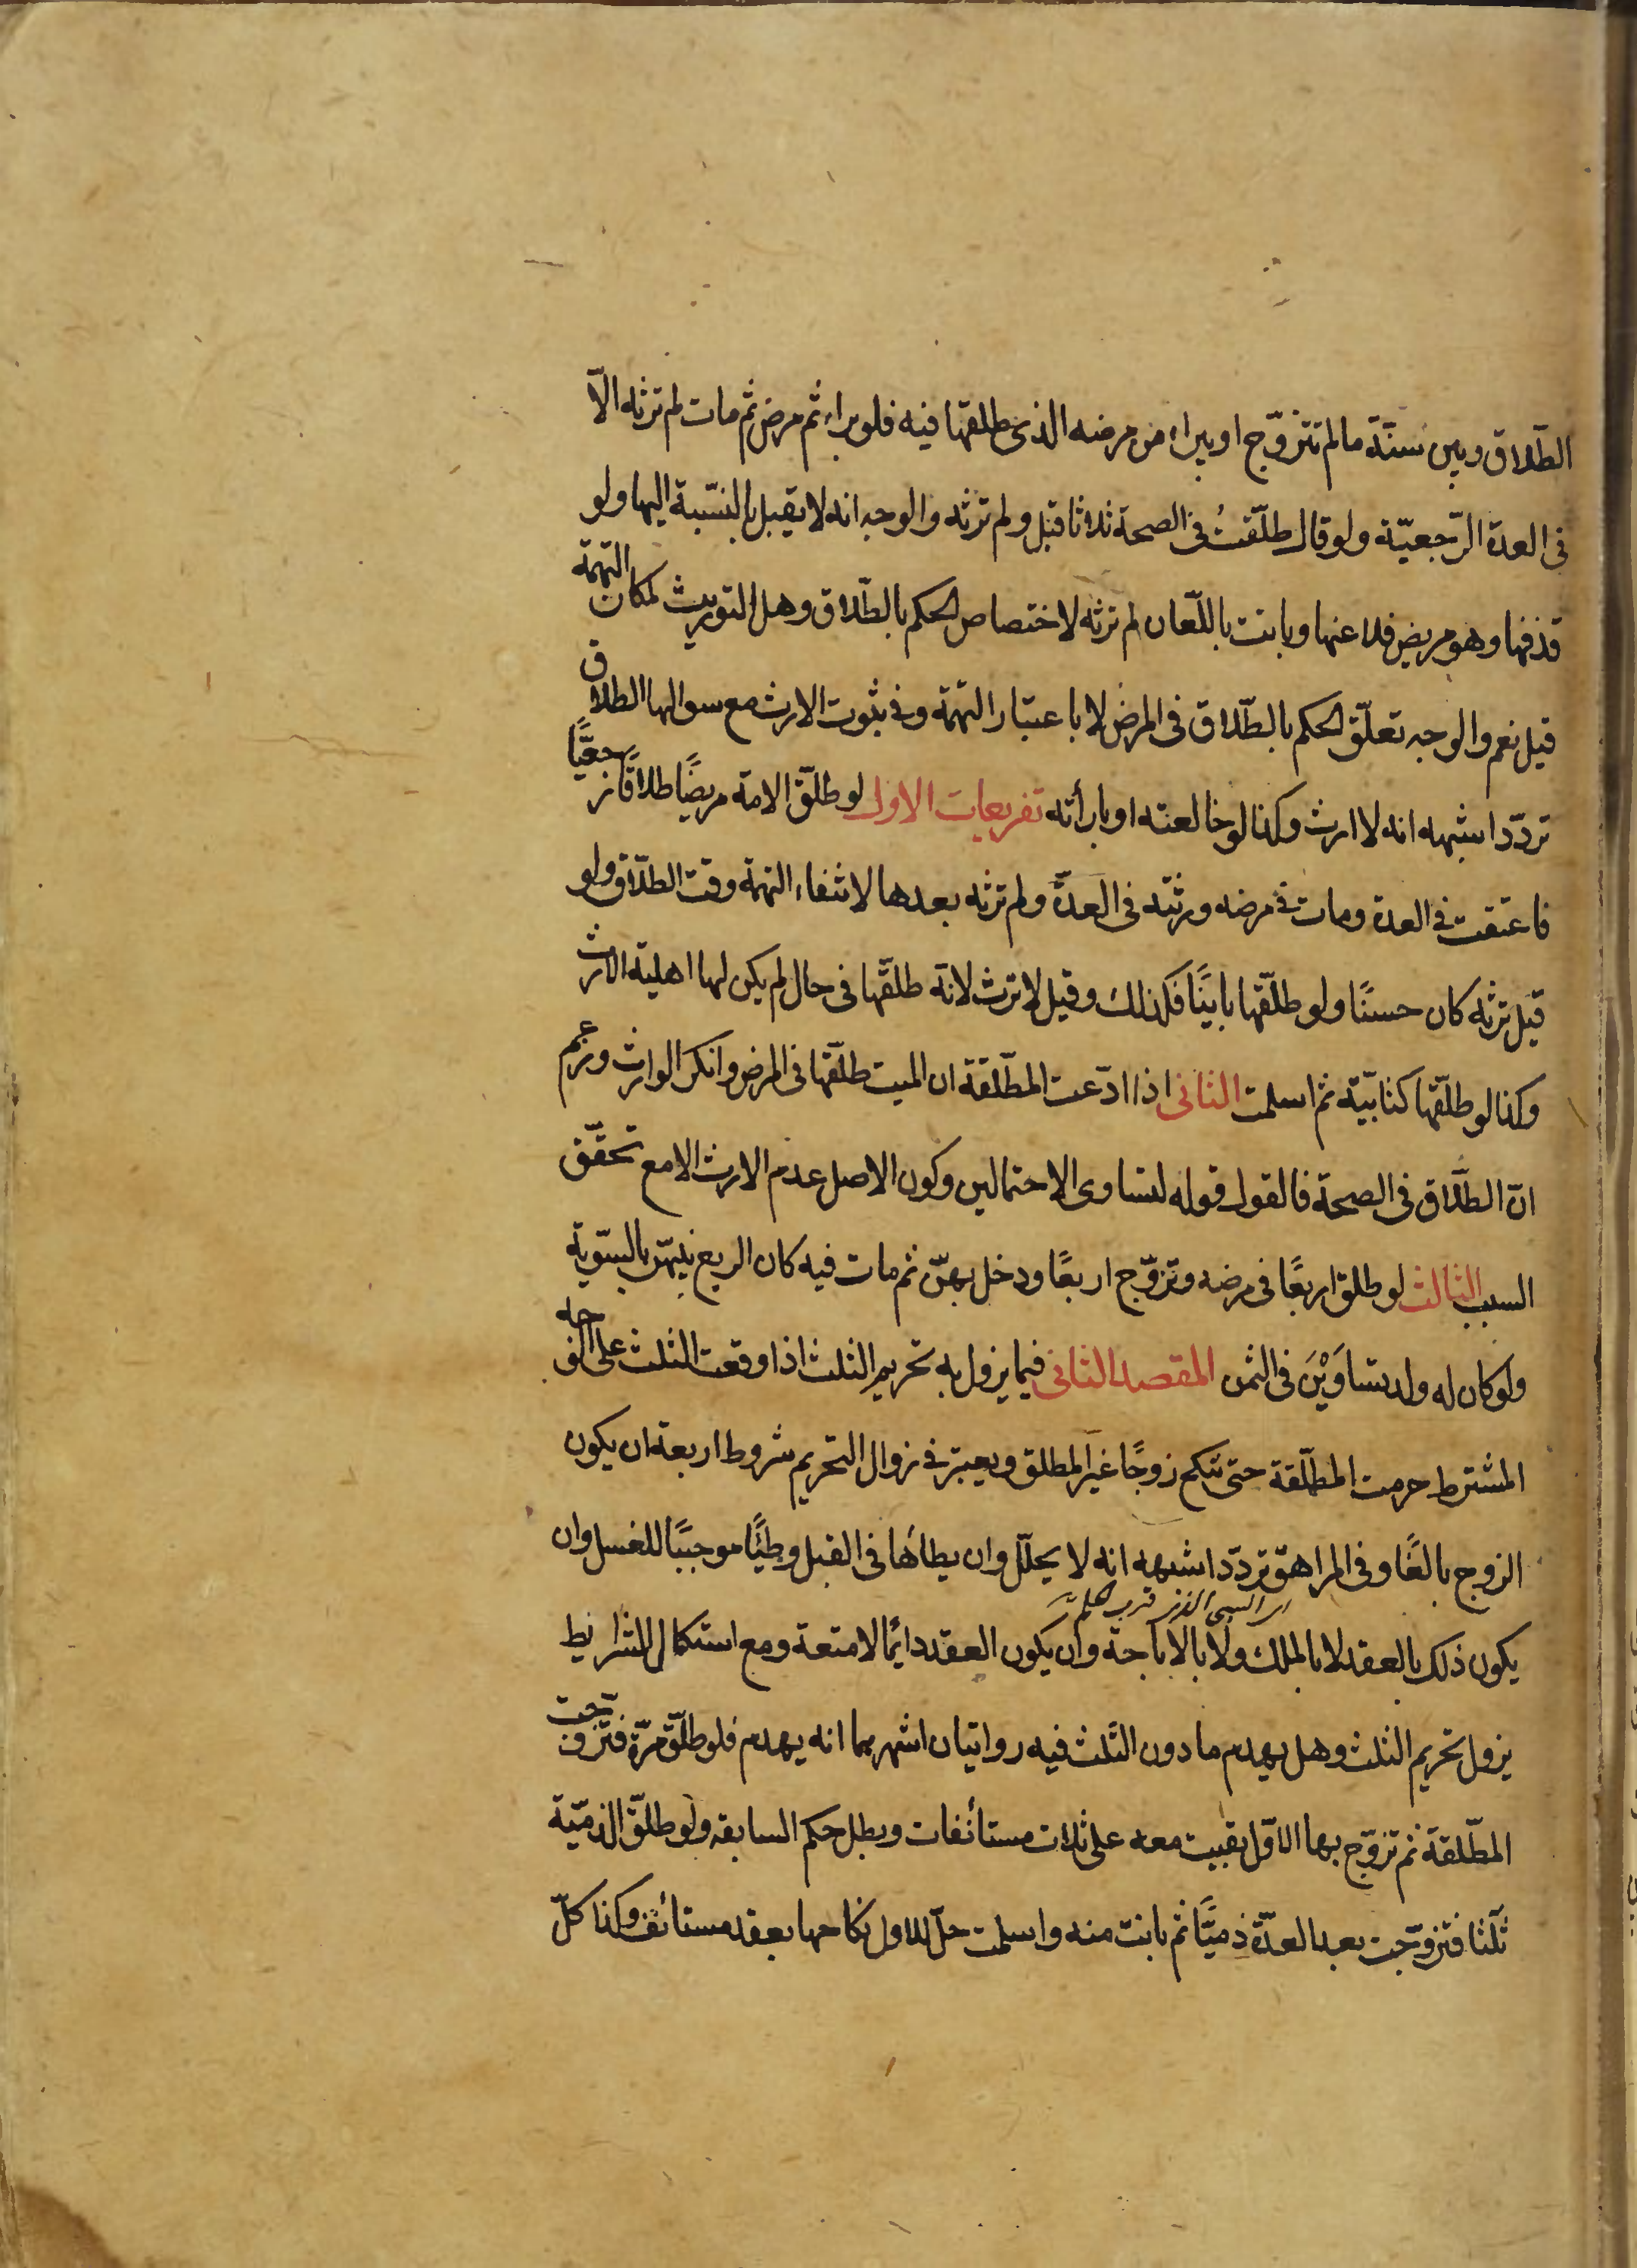 الطّلاق وبين سنتة ما لم تتزوّج او يبراء من مرضه الذى طلقها فيه فلو براء ثم مرض ثم مات لم ترثه الّا
فى العدة الرّجعيّة ولو قال طلّقتُ فى الصحة ثلاثا قبل ولم ترثه والوجه انه لا يقبل بالنسّبة اليها ولو
قذفها وهو مريض فلاعنها وبانت باللّعان لم ترثه لاختصاص الحكم بالطّلاق وهل التوريث لمكان التهمة
قيل نعم والوجه تعلّق الحكم بالطّلاق فى المرض لا باعتبار التهمة وفى ثبوت الارث مع سوالها الطلاق
تردّد اشبهه انه لا ارث وكذا لو خالعته او بارأته تفريعات الاول لو طلّق الامة مريضًا طلاقًا رجعيًّا
فاعتقت فى العدة ومات فى مرضه ورثته فى العدّة ولم ترثه بعدها لانتفاء التهمة وقت الطلّاق ولو
قيل ترثه كان حسنًا ولو طلّقها باينًا فكذلك وقيل لا ترث لانّه طلقّها فى حال لم يكن لها اهلية الارث
وكذا لو طلّقها كتابيّة ثم اسلمت الثانى اذا ادّعت المطّلقة ان الميت طلّقها فى المرض وانكر الوارث وزعم
انّ الطّلاق فى الصحة فالقول قوله لتساوى الاحتمالين وكون الاصل عدم الارث الا مع تحقّق
السبب الثالث لو طلق اربعًا فى مرضه وتزوّج اربعًا ودخل بهنّ ثم مات فيه كان الربع بينهنّ بالسّوية
ولو كان له ولد يتساوَيْنَ فى الثمن المقصد الثانى فيما يزول به تحريم الثلث اذا وقعت الثلث على الوجه
المشترط حرمت المطلّقة حتى تنكح زوجًا غير المطلق ويعتبر فى زوال التحريم شروط اربعة ان يكون
الزوج بالغًا وفى المراهق تردّد اشبهه انه لا يحلّل وان يطائها فى القبل وطيًّا موجبًا للغسل وان
يكون ذلك بالعقد لا بالملك ولا بالاباحة وان يكون العقد دائمًا لا متعة ومع استكمال الشرايط
يزول تحريم الثلث وهل يهدم ما دون الثّلث فيه روايتان اشهرهما انه يهدم فلو طلّق مرّة فتزوجت
المطّلقة ثم تزوّج بها الاوّل بقيت معه على ثلاث مستأنفات وبطل حكم السابقه ولو طلّق الذمّية
ثلثا فتزوّجت بعد العدّة ذميًّا ثم بانت منه واسلمت حلّ للاول نكاحها بعقد مستأنف وكذا كلّ